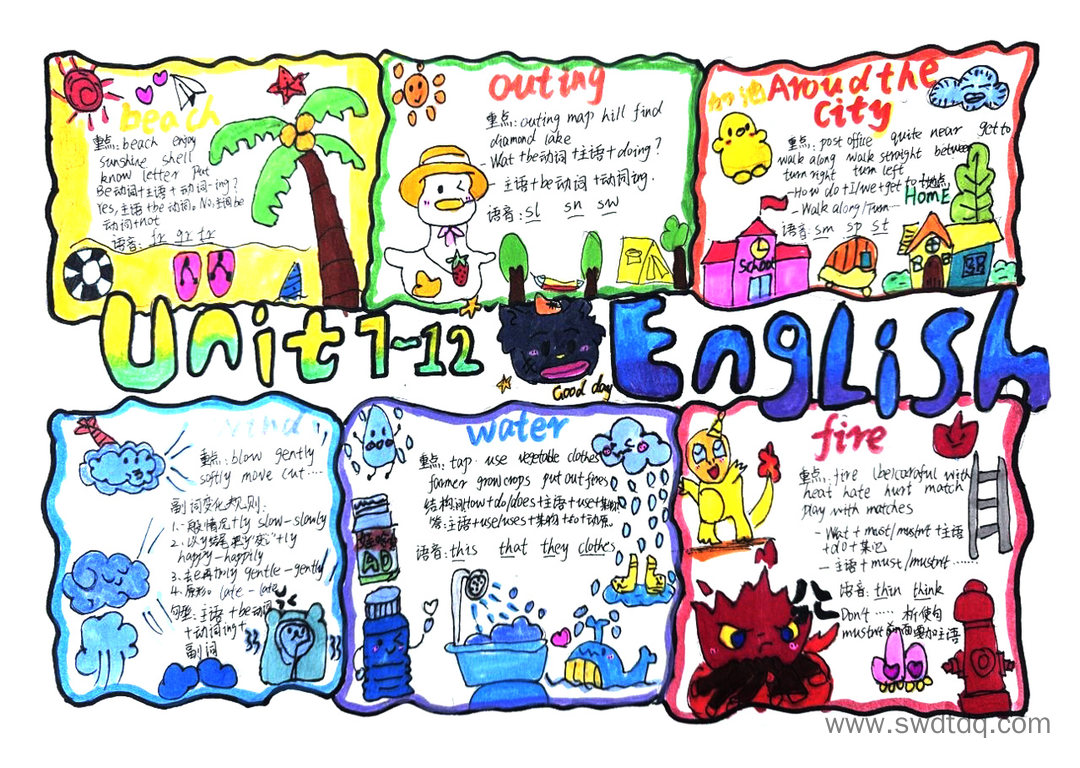 beach
重点: beach enjoy
sunshine shell
know letter Put
Be动词+主语+动词-ing?
Yes,主语+be动词。No,主词be
动词+not
语音: fr gr tr
outing
重点:outing map hill find
diamond lake
-Wat+be动词+主语+doing?
-主语+be动词+动词ing.
语音:sl sn sw
加油
Aroud the
City
重点:post office quite near get to
walk along walk straight between
turn right turn left
-How do+I/we+get to+地点
-Walk along/Turn…
语音:sm sp st
HOME
School
Unit 7-12
Good day
English
wind
重点:blow gently
softly move cut……
副词变化规则:
1.一般情况+ly slow-slowly
2.以y结尾变y为i+ly
happy-happily
3.去e再加ly gentle-gently
4.原形。late-late
句型:主语+be动词
+动词ing+
副词
water
重点:tap use vegetable clothes
farmer grow crops put out fires
结构:问How+do/does+主语+use+某物
答:主语+use/uses+某物+to+动原。
语音:this that they clothes
AD
fire
重点:fire (be)careful with
heat hate hurt match
play with matches
-Wat+must/mustnt+主语
+do+某地
-主语+must/mustnt……
语音:thin think
Don't…… 祈使句
mustnt前面要加主语
www.swdtdq.com